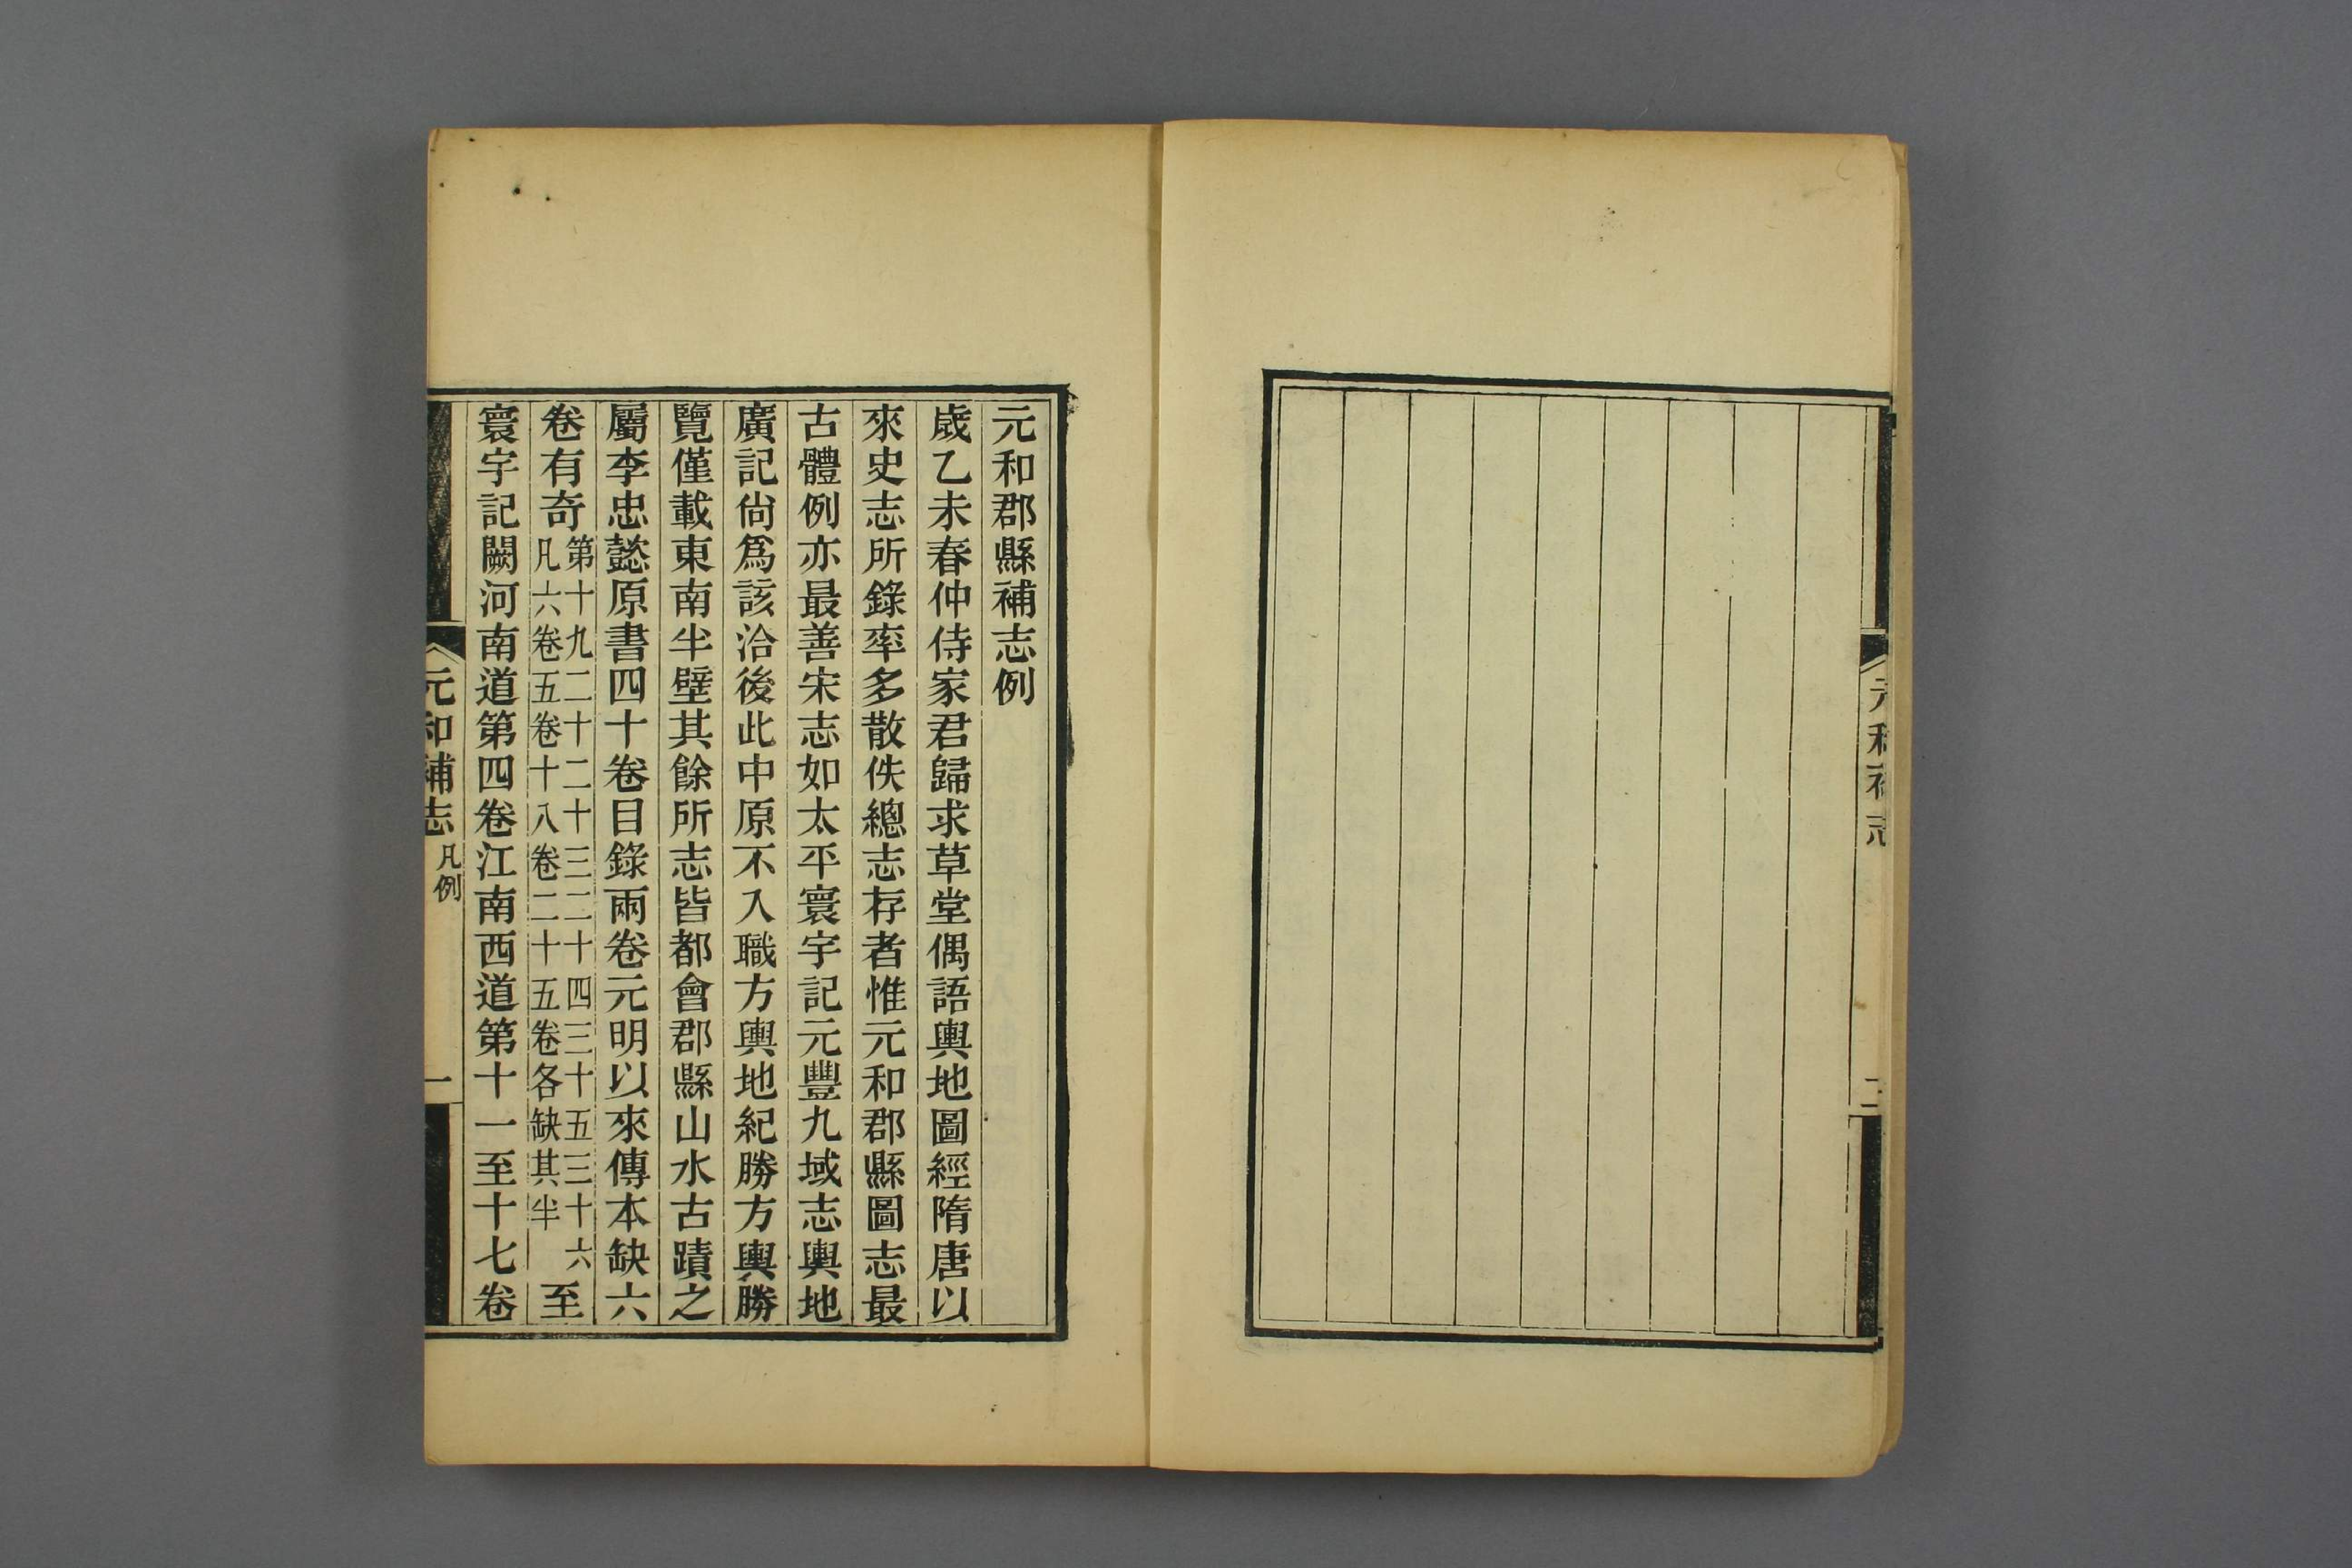 元和補志
二
元和郡縣補志例
歲乙未春仲侍家君歸求草堂偶語輿地圖經隋唐以
來史志所錄率多散佚總志存者惟元和郡縣圖志最
古體例亦最善宋志如太平寰宇記元豐九域志輿地
廣記尙爲該洽後此中原不入職方輿地紀勝方輿勝
覽僅載東南半壁其餘所志皆都會郡縣山水古蹟之
屬李忠懿原書四十卷目錄兩卷元明以來傳本缺六
卷有奇第十九二十二十三二十四三十五三十六凡六卷五卷十八卷二十五卷各缺其半至
寰宇記闕河南道第四卷江南西道第十一至十七卷
元和補志
凡例
一